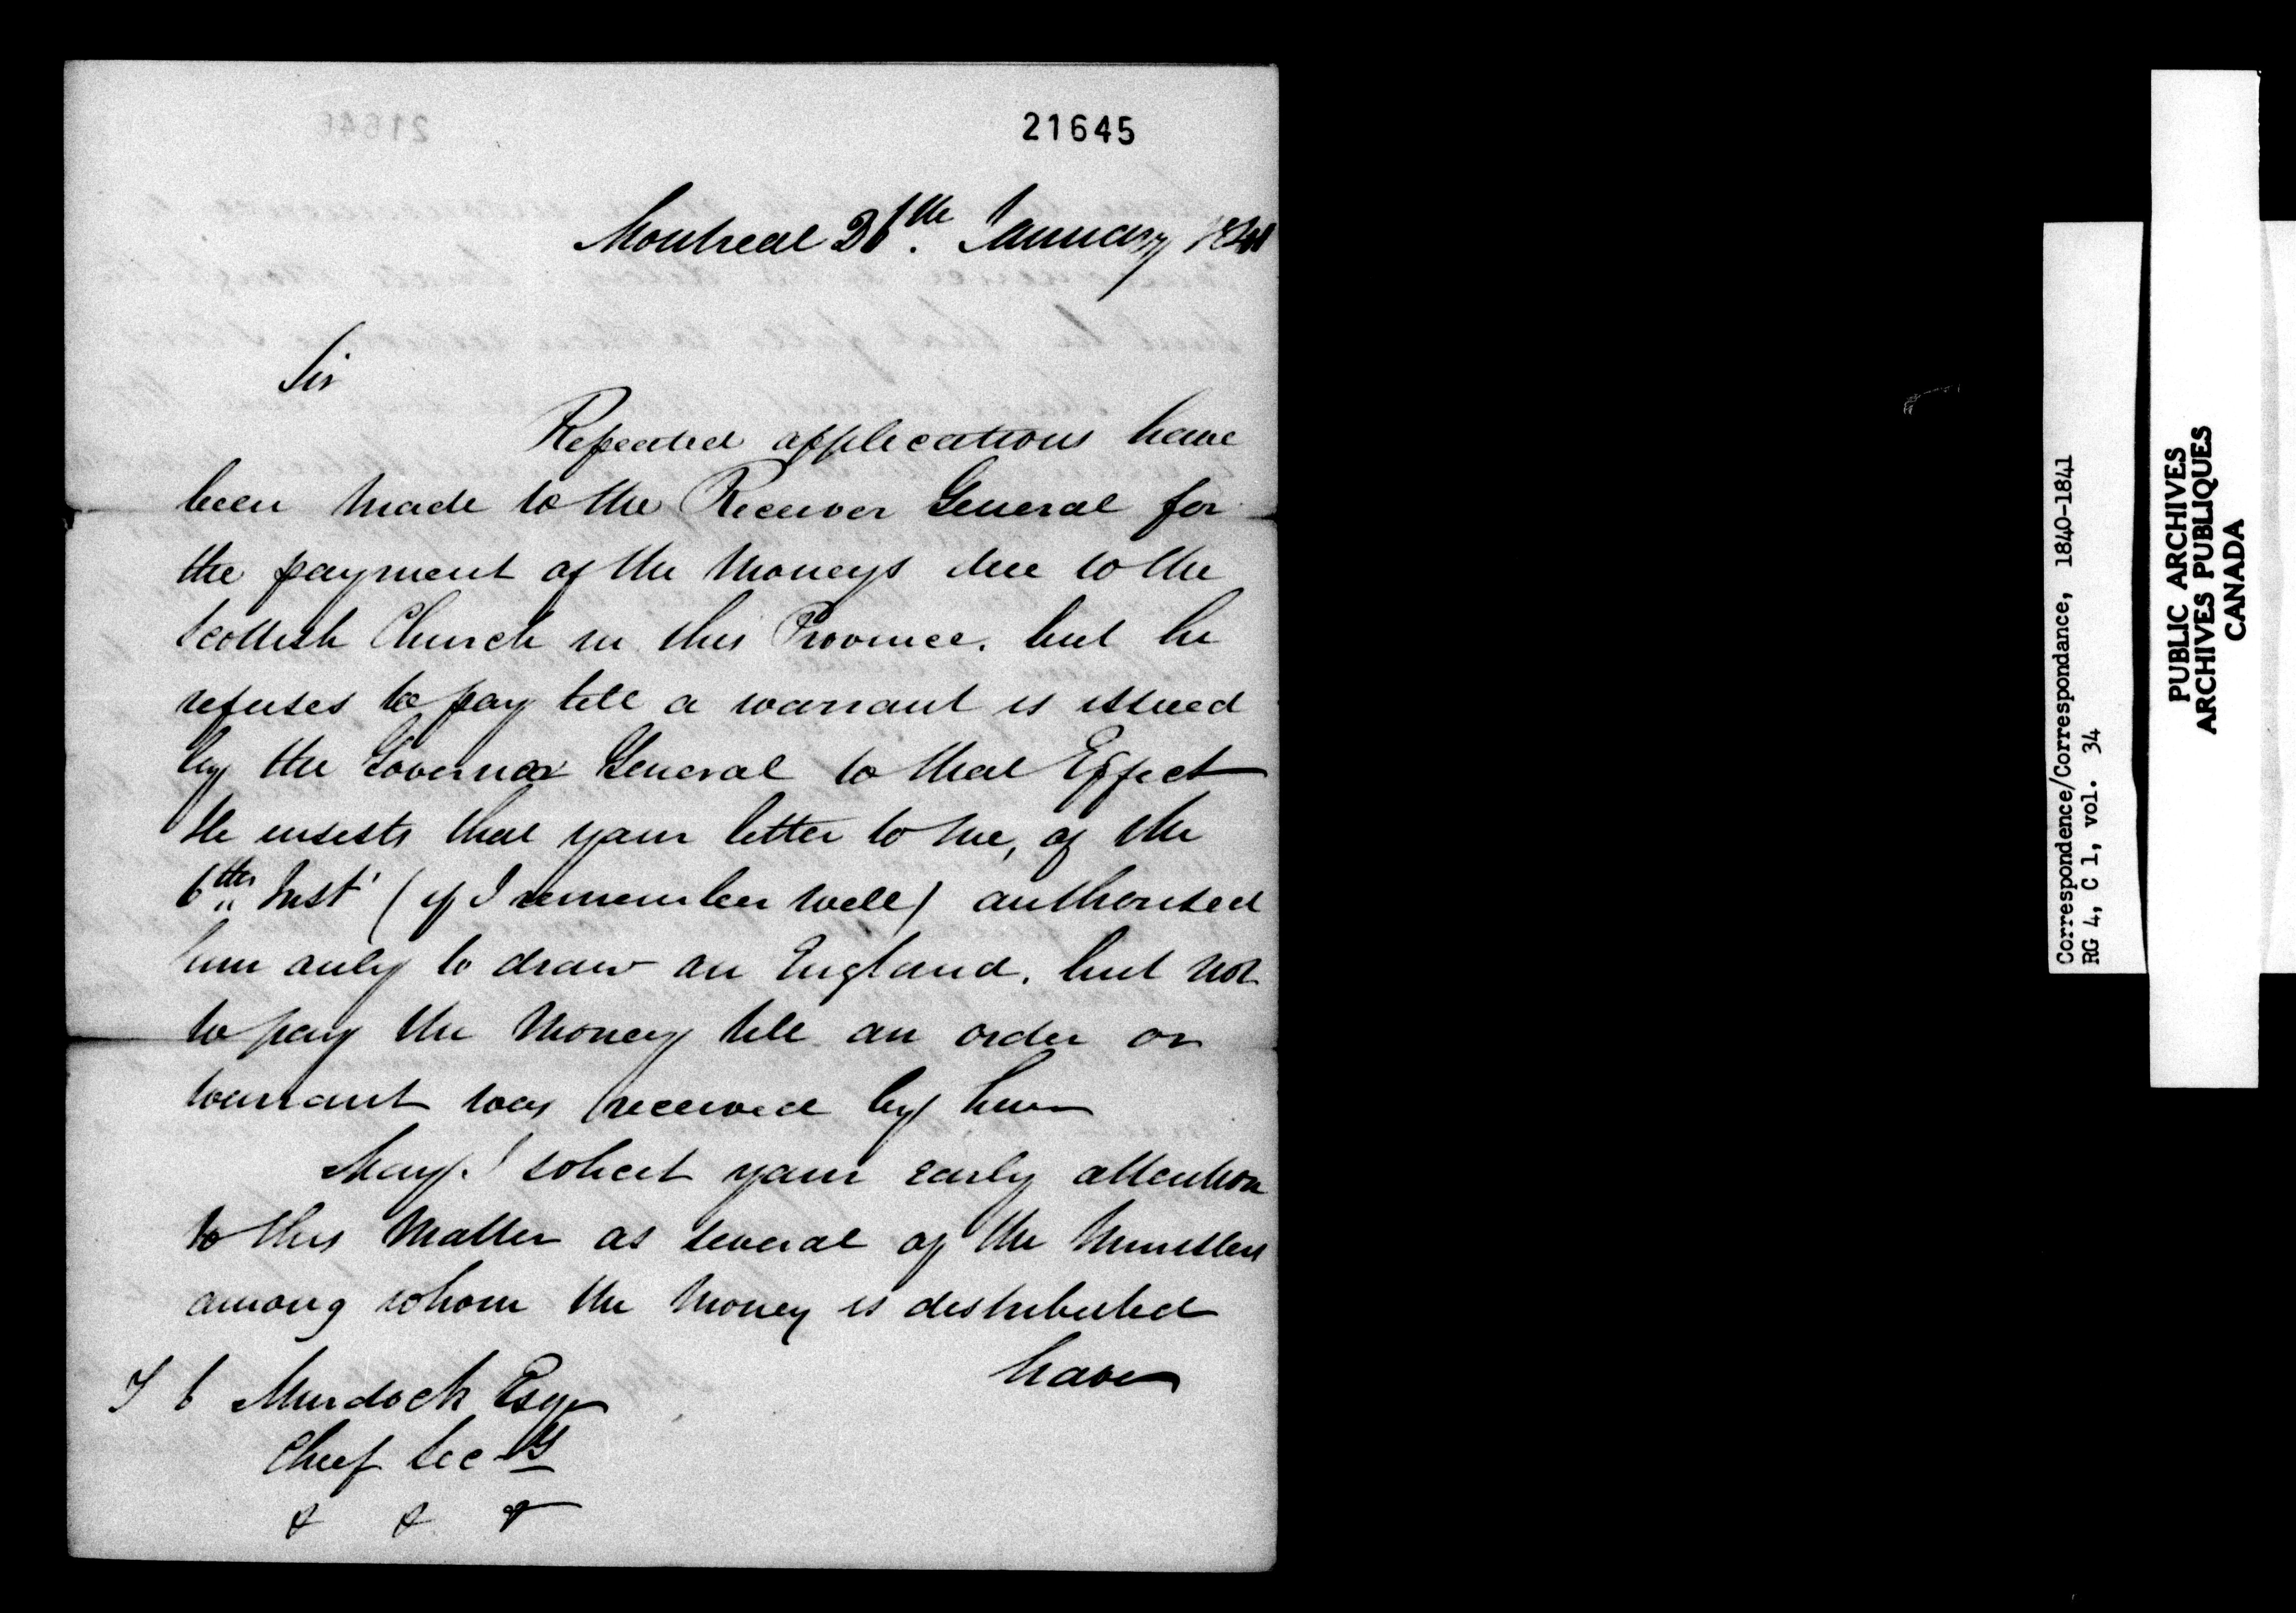 21645
Montreal 26th. January 1841
Sir
Repeated applications have
been made to the Receiver General for
the payment of the Moneys due to the
Scottish Church in this Province. but he
refuses to pay till a warrant is issued
by the Governor General to that Effect
He insists that your letter to me, of the
6th Inst' (if I remember well) authorised
him only to draw on England. but not
to pay the Money till an order or
warrant was received by him
May I solicit your early attention
to this Matter as several of the Ministers
among whom the Money is distributed
have
T C Murdock Esqr
Chief Secy
& & &
Correspondence/Correspondance, 1840-1841
RG 4, C 1, vol. 34
PUBLIC ARCHIVES
ARCHIVES PUBLIQUES
CANADA